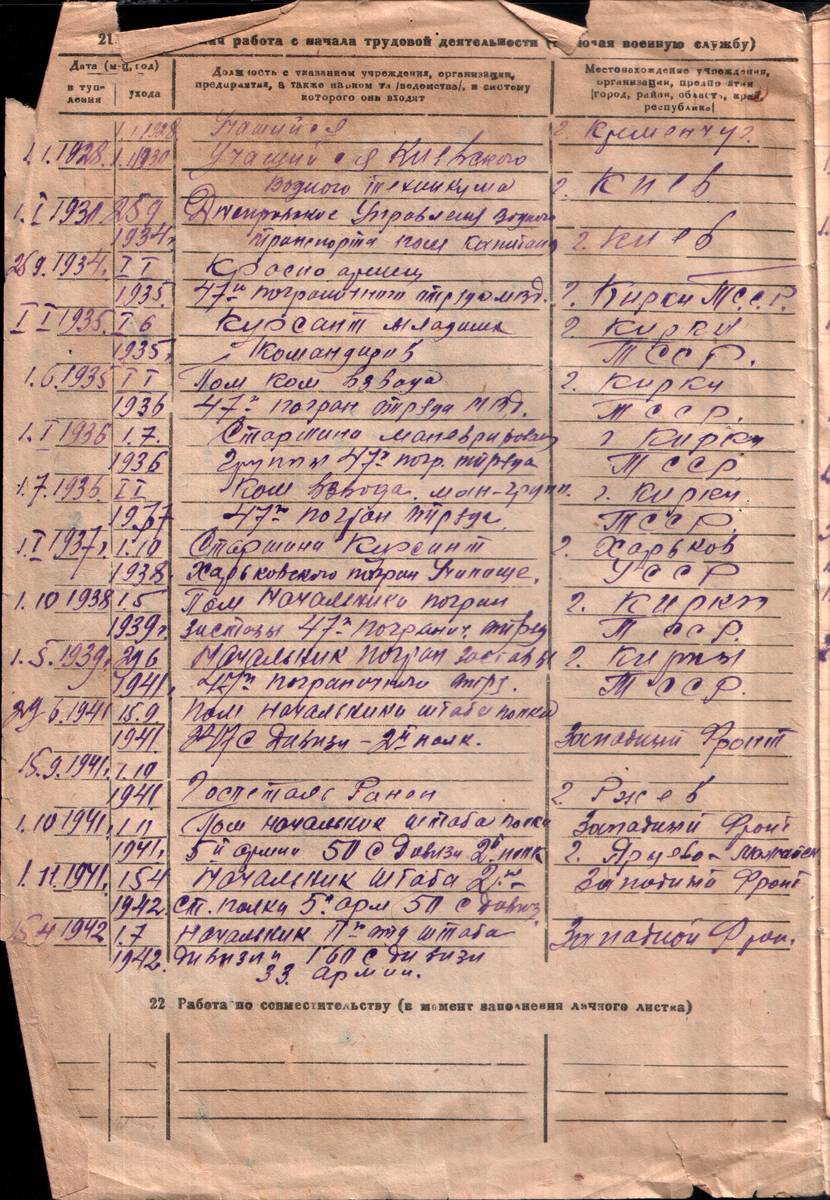 21. работа с начала трудовой деятельности (включая военную службу)
Дата (м-ц, год)
в туп-
ления
ухода
Должность с указанием учреждения, организации,
предприятия, а также министерства /ведомства/, в систему
которого они входят
Местонахождение учреждения,
организации, предприятия
/город, район, область, край,
республика/
1.1.1928 Учащийся г. Кременчуг.
1.1.1928. 1.1.1930 Учащийся Киевского
Водного техникума г. Киев
1.I 1931 25 9 Днепровское Управления Водного
1934г. транспорта пом капитана г. Киев
25 9. 1934. I I Красно армеец
1935. 47го пограничного отряда мвд. г. Кирки Т.С.С.Р.
I I 1935. I 6 Курсант младших г Кирки
1935г. Командиров Т ССР.
1.6.1935 I I Пом ком взвода г. Кирки
1936 47го погран отряда мвд. Т ССР.
1.I 1936 1.7. Старшина маневрировочн г Кирки
1936 группы 47го погр. отряда Т ССР
1.7. 1936 I I Ком взвода. ман-групп. г. Кирки.
1937 47го погран отряда Т ССР.
1.I 1937г. 1.10 Старшина Курсант г. Харьков
1938. Харьковского погран Училище. УССР
1.10 1938 1.5 Пом Начальника погран г. Кирки
1939г. заставы 47го погранич. отряд Т ССР.
1.5.1939г. 29 6 Начальник погран заставы г. Кирки
1941. 47го пограничного отряд. Т ССР.
29 6.1941 15.9 пом Начальника штаба полка
1941. с Дивизи - 2й полк. Западный Фронт
15.9.1941. 1.10
1941 Госпеталь Ранен г. Ржев
1.10 1941. 1.11 Пом начальник штаба полка Западный Фронт
1941. 5й армии 50 с Дивизи 2й полк г. Ярцево - Можайск
1.11.1941. 15 4 Начальник штаба 2го Западный Фронт
1942. ст. полка 5й арм 50 с дивиз.
15.4 1942 1.7 Начальник штаба Западной Фрон.
1942. дивизии 160 с дивизи
33. армии.
22 Работа по совместительству (в момент заполнения личного листка)